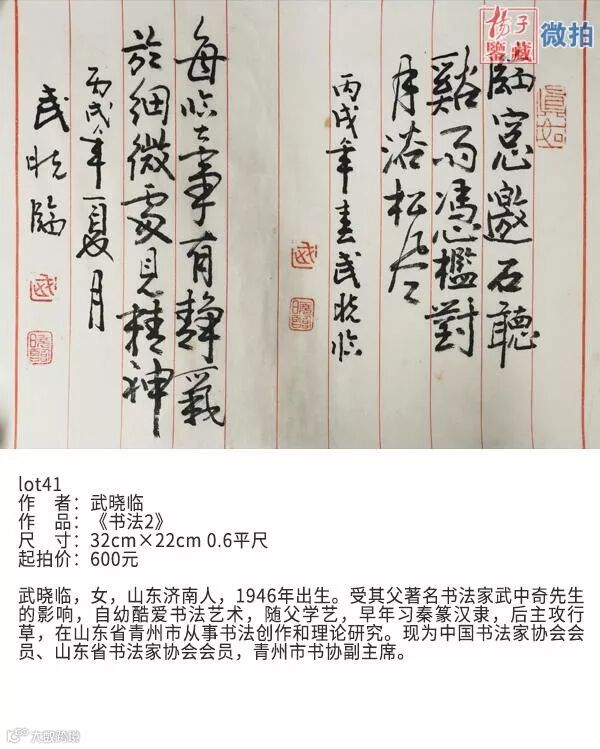 子
鑒藏
微拍
真如
窓邀石聽
谿雨馮檻對
月浴松
丙戌年春武晓临
武
每临大事有靜
於細微處見精神
丙戌年夏月
武晓临
武
lot41
作 者：武晓临
作 品：《书法2》
尺 寸：32cm×22cm 0.6平尺
起拍价：600元
武晓临，女，山东济南人，1946年出生。受其父著名书法家武中奇先生
的影响，自幼酷爱书法艺术，随父学艺，早年习秦篆汉隶，后主攻行
草，在山东省青州市从事书法创作和理论研究。现为中国书法家协会会
员、山东省书法家协会会员，青州市书协副主席。